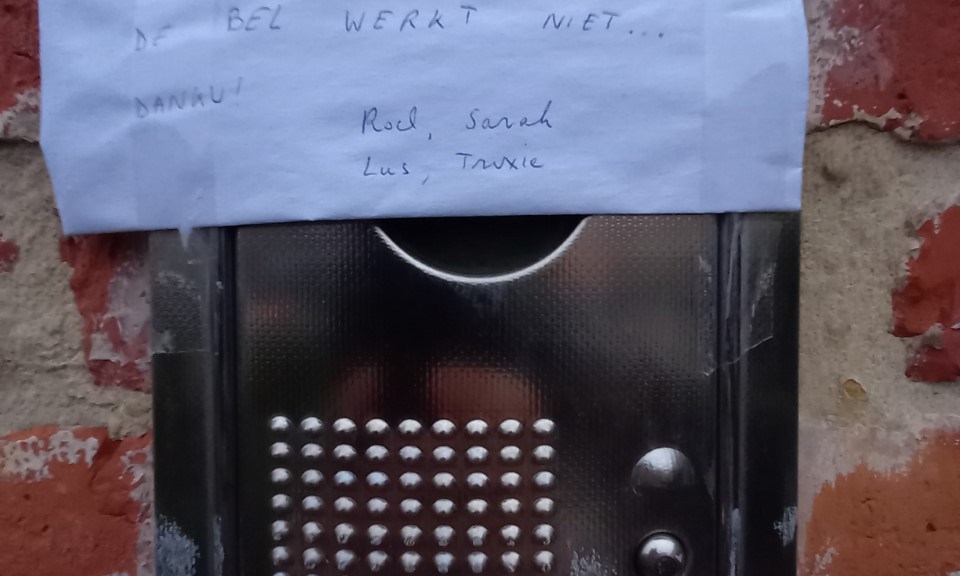 DE BEL WERKT NIET...
DANKU!
Roel, Sarah
Lus, Truxie